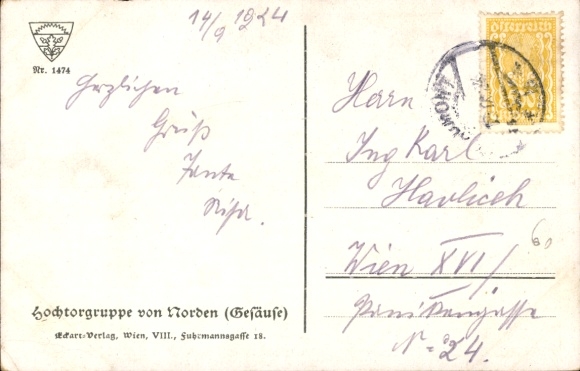 14/9 1924
Nr. 1474
Herzlichen
Gruß
Tante
Hochtorgruppe von Norden (Gesäuse)
Eckart-Verlag, Wien, VIII., Fuhrmannsgasse 18.
Österreich
Herrn
Ing Karl
Havlicek
Wien XVI/
No 24.